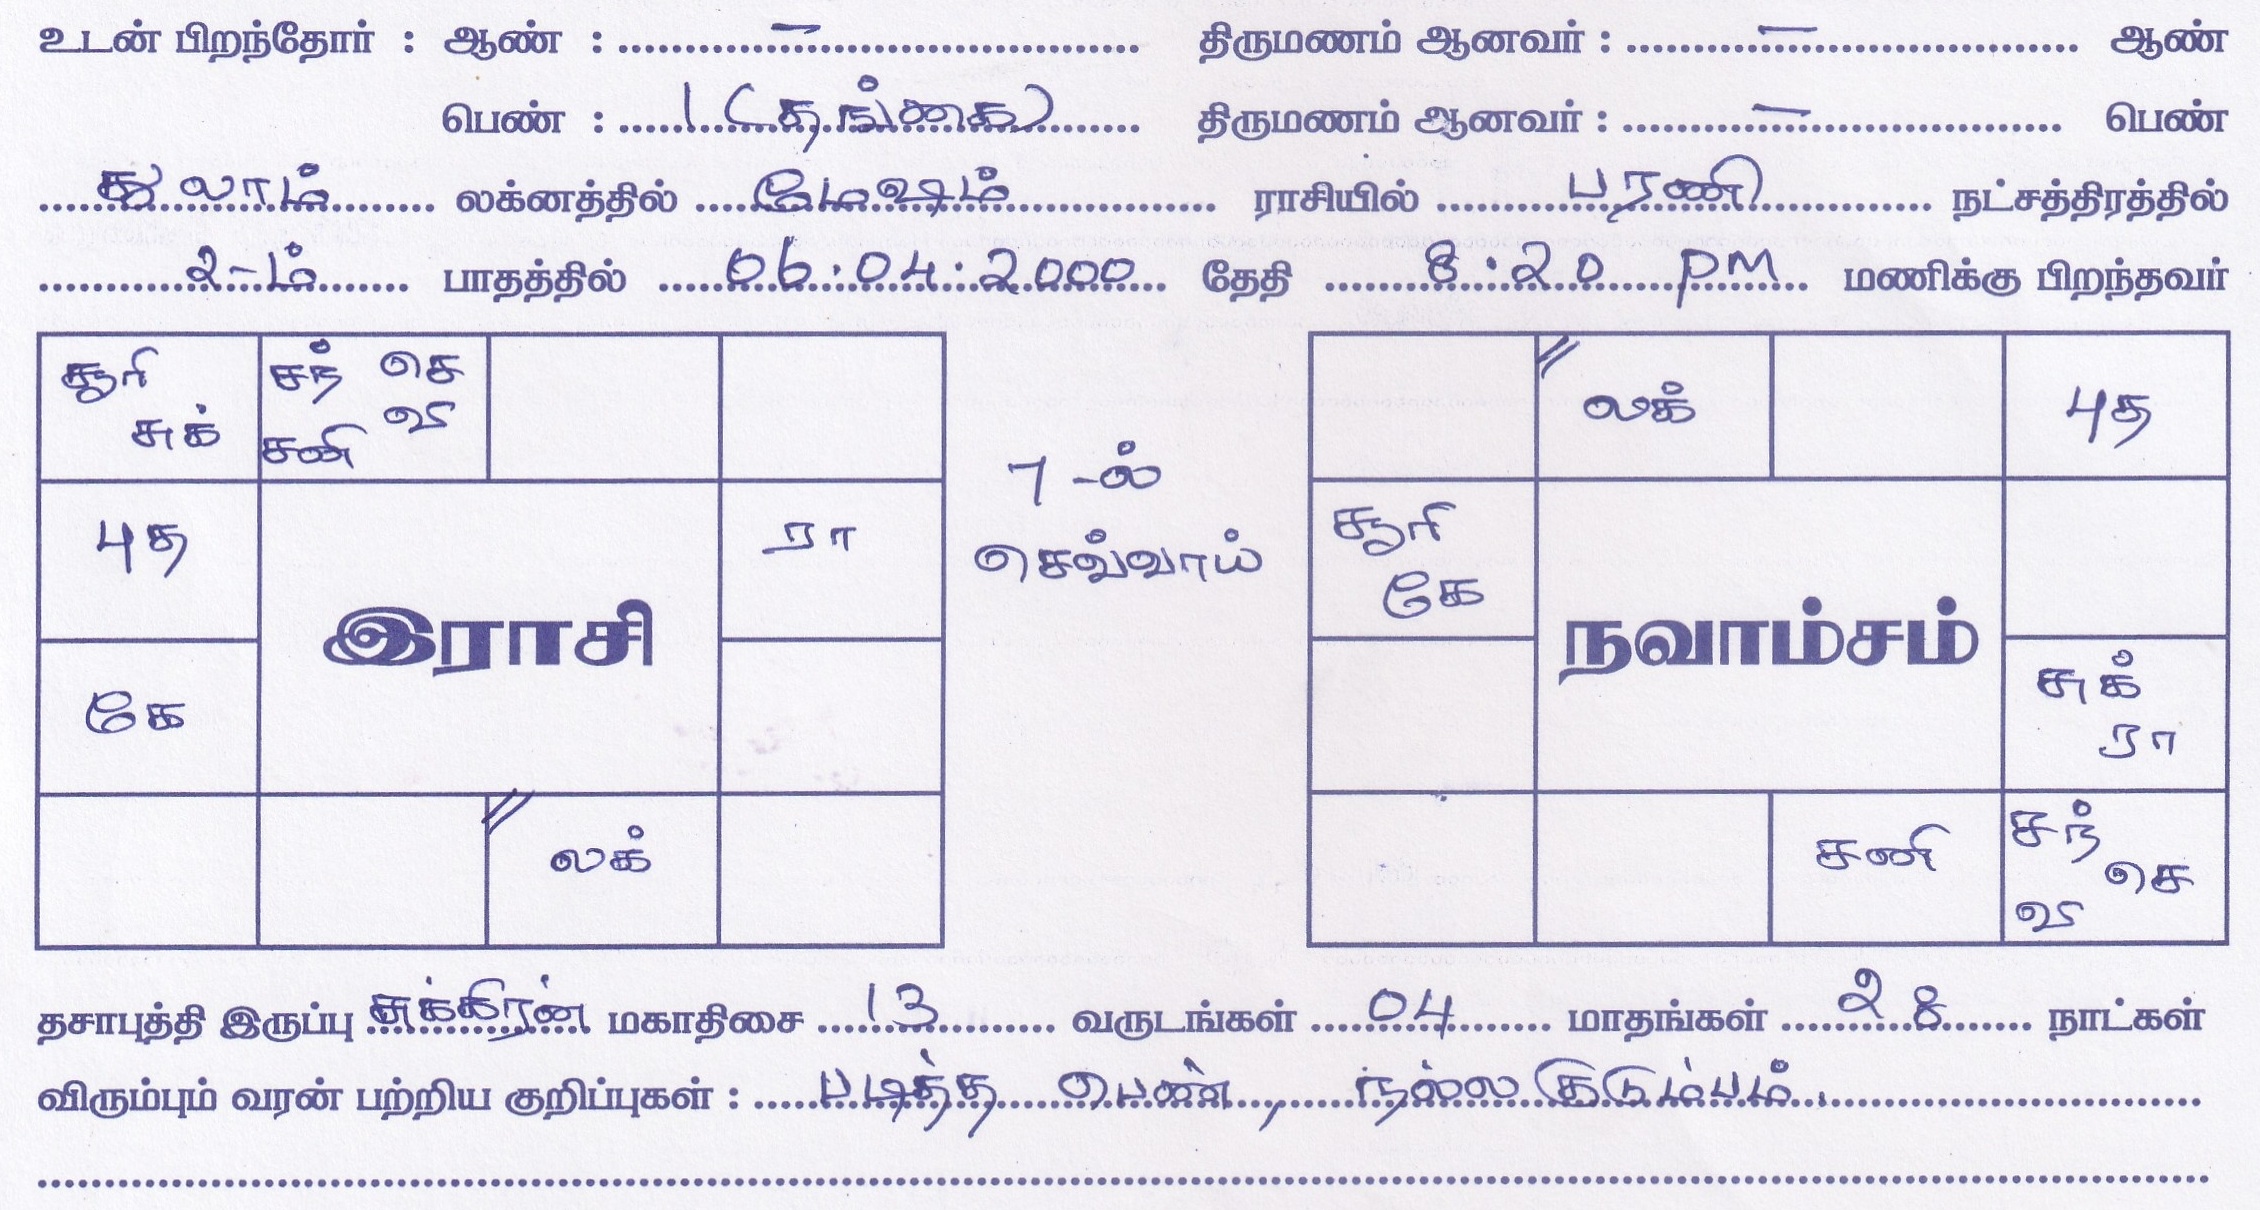 உடன் பிறந்தோர் : ஆண் : – திருமணம் ஆனவர் : – ஆண்
பெண் : 1 (தங்கை) திருமணம் ஆனவர் : – பெண்
துலாம் லக்னத்தில் மேஷம் ராசியில் பரணி நட்சத்திரத்தில்
2-ம் பாதத்தில் 06.04.2000 தேதி 8.20 PM மணிக்கு பிறந்தவர்
சூரி சந் செ
சுக் சனி வி
புத ரா
இராசி
கே
லக்
7-ல்
செவ்வாய்
லக் புத
சூரி
கே
நவாம்சம்
சுக்
ரா
சனி சந்
செ
வி
தசாபுத்தி இருப்பு சுக்கிரன் மகாதிசை 13 வருடங்கள் 04 மாதங்கள் 28 நாட்கள்
விரும்பும் வரன் பற்றிய குறிப்புகள் : படித்த பெண், நல்ல குடும்பம்.